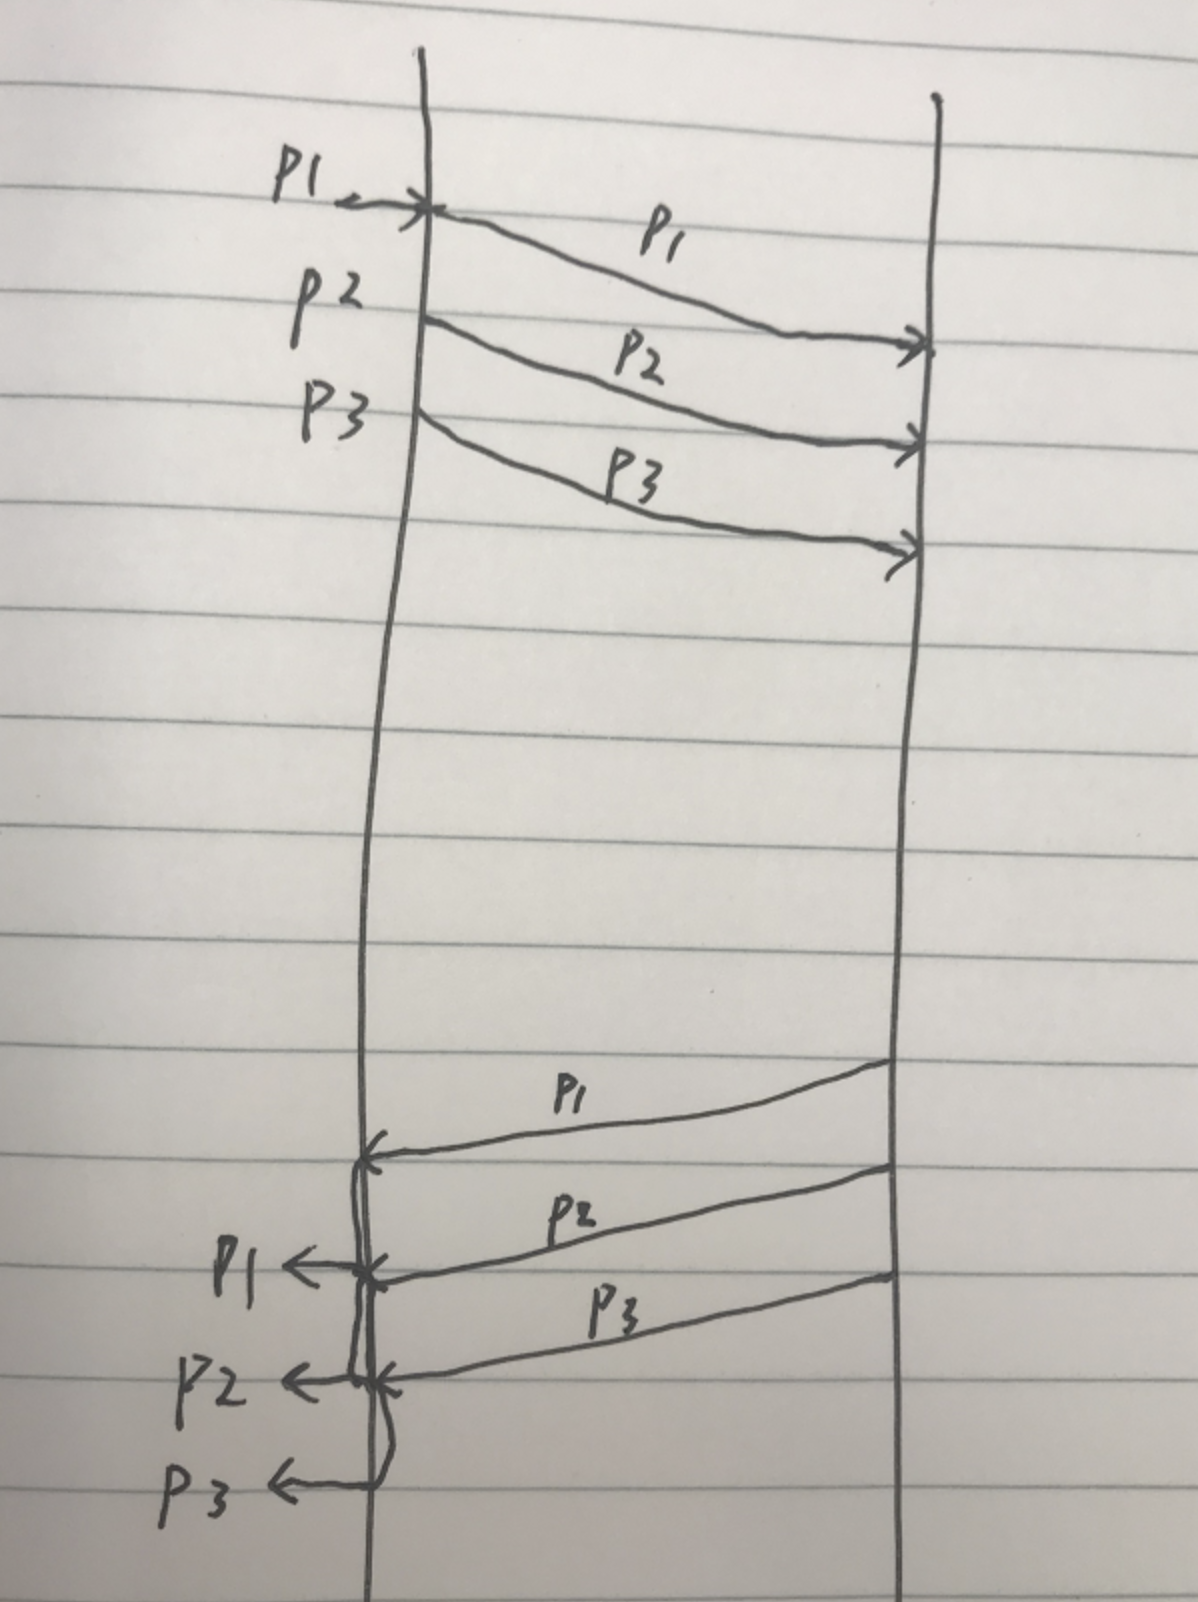 P1
P1
P2
P2
P3
P3
P1
P2
P1
P3
P2
P3